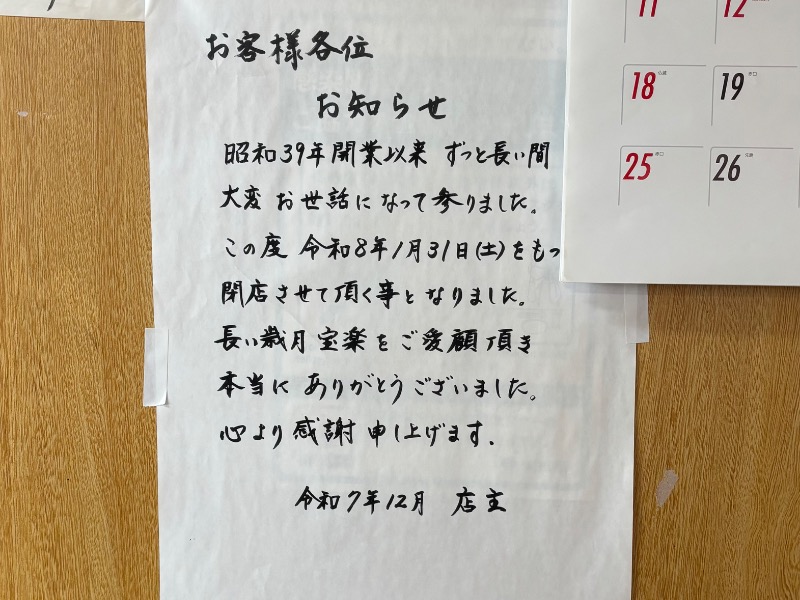 お客様各位
お知らせ
昭和39年開業以来 ずっと長い間
大変 お世話になって参りました。
この度 令和8年1月31日(土)をもっ
閉店させて頂く事となりました。
長い歳月宝楽をご愛顧頂き
本当に ありがとうございました。
心より感謝申し上げます.
令和7年12月 店主
11 12
18 19
25 26